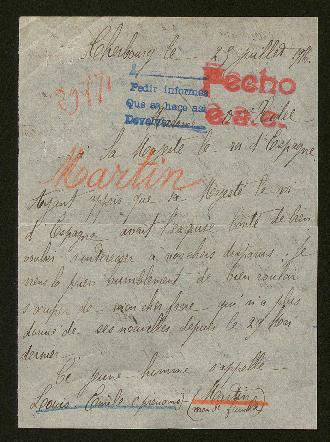 Cherbourg le 29 juillet 1916
29171
Pedir informes
Que se haga así
Devolver
Hecho
e.s.
Madame
Sa Majesté le roi d'Espagne
Martin
Ayant appris que sa Majesté le roi
d'Espagne avait l'exquise bonté de bien
vouloir s'intéresser à nos chers disparus, je
viens la prier humblement de bien vouloir
s'occuper de mon cher frère qui n'a plus
donné de ses nouvelles depuis le 29
dernier
Ce jeune homme s'appelle
Louis (prénoms) Martin
(nom de famille)